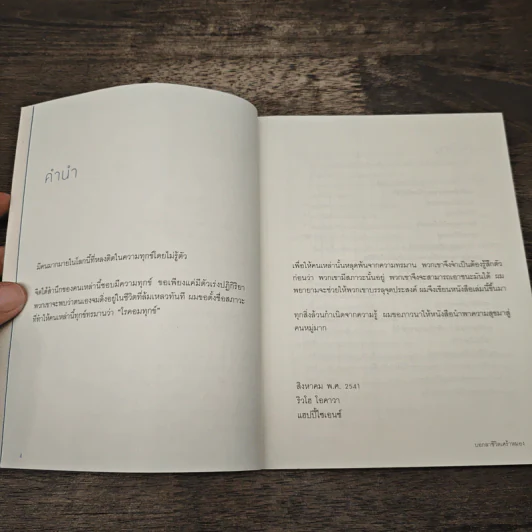 คำนำ
มีคนมากมายในโลกนี้ที่หลงติดในความทุกข์โดยไม่รู้ตัว
จิตใต้สำนึกของคนเหล่านี้ชอบมีความทุกข์ ขอเพียงแค่มีตัวเร่งปฏิกิริยา
พวกเขาจะพบว่าตนเองจมดิ่งอยู่ในชีวิตที่ล้มเหลวทันที ผมขอตั้งชื่อสภาวะ
ที่ทำให้คนเหล่านี้ทุกข์ทรมานว่า "โรคอมทุกข์"
4
เพื่อให้คนเหล่านั้นหลุดพ้นจากความทรมาน พวกเขาจึงจำเป็นต้องรู้สึกตัว
ก่อนว่า พวกเขามีสภาวะนั้นอยู่ พวกเขาจึงจะสามารถเอาชนะมันได้ ผม
พยายามจะช่วยให้พวกเขาบรรลุจุดประสงค์ ผมจึงเขียนหนังสือเล่มนี้ขึ้นมา
ทุกสิ่งล้วนกำเนิดจากความรู้ ผมขอภาวนาให้หนังสือนำพาความสุขมาสู่
คนหมู่มาก
สิงหาคม พ.ศ. 2541
ริวโฮ โอคาวา
แฮปปี้ไซเอนซ์
บอกลาชีวิตเศร้าหมอง